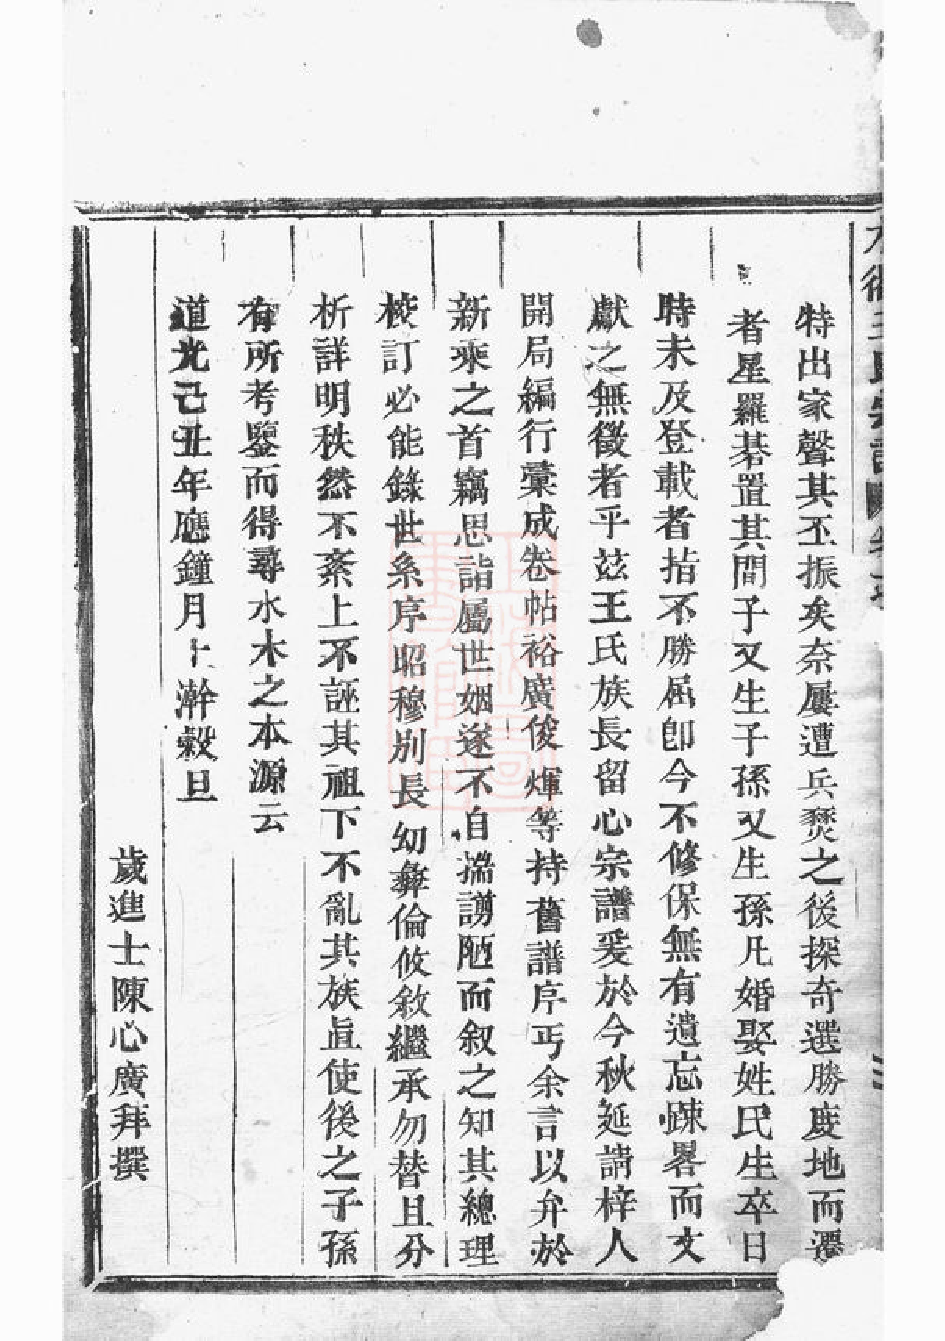 特出家聲其丕振矣奈屢遭兵燹之後探奇選勝度地而遷
者星羅碁置其間子又生子孫又生孫凡婚娶姓氏生卒日
時未及登載者指不勝屈卽今不修保無有遺忘踈畧而文
獻之無徵者乎玆王氏族長留心宗譜爰於今秋延請梓人
開局編行彙成卷帖裕廣俊煇等持舊譜序丐余言以弁於
新乘之首竊思詣屬世姻遂不自揣謭陋而叙之知其總理
校訂必能錄世系序昭穆別長幼彝倫攸敘繼承勿替且分
析詳明秩然不紊上不誣其祖下不亂其族眞使後之子孫
有所考鑒而得尋水木之本源云
道光己丑年應鐘月上澣穀旦
歲進士陳心廣拜撰